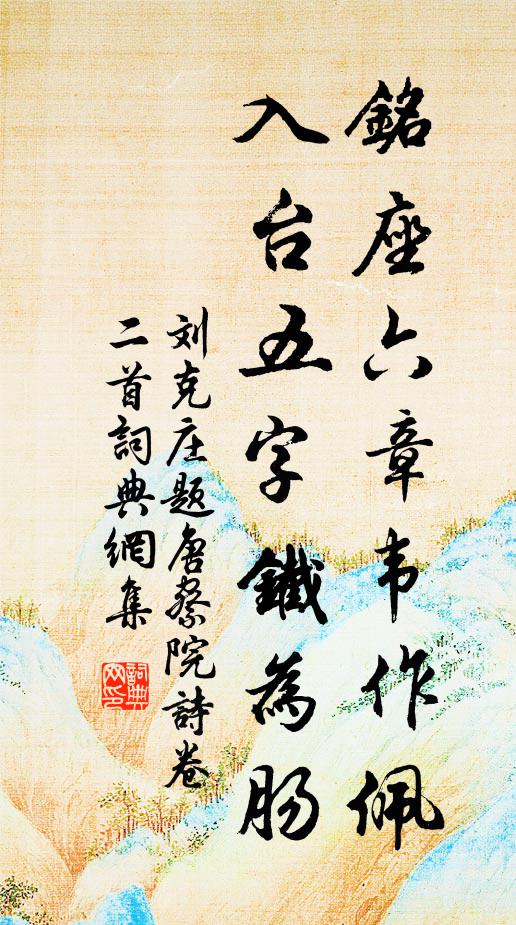 銘座六章韦作佩
入台五字鐵為肠
刘克庄题唐察院詩卷
二首詞典網集
詞典网印